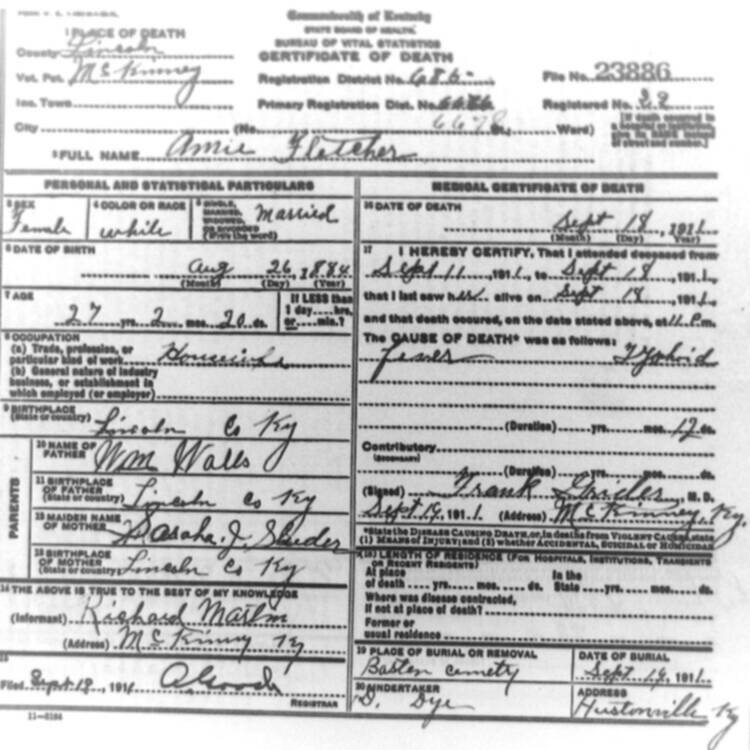 Commonwealth of Kentucky
STATE BOARD OF HEALTH.
BUREAU OF VITAL STATISTICS
CERTIFICATE OF DEATH
1 PLACE OF DEATH
County Lincoln
Vot. Pct. McKinney
Inc. Town
City
Registration District No. 685-
File No. 23886
Primary Registration Dist. No. 6678
Registered No. 32
(No. St., Ward)
[If death occured in a hospital or institution, give its NAME instead of street and number.]
2 FULL NAME Amie Fletcher
PERSONAL AND STATISTICAL PARTICULARS
3 SEX Female
4 COLOR OR RACE white
5 SINGLE, MARRIED, WIDOWED, OR DIVORCED (Write the word) Married
6 DATE OF BIRTH
Aug 26, 1884
(Month) (Day) (Year)
7 AGE
27 yrs. 2 mos. 20 ds.
If LESS than 1 day....hrs. or....min.?
8 OCCUPATION
(a) Trade, profession, or particular kind of work Housewife
(b) General nature of industry business, or establishment in which employed (or employer)
9 BIRTHPLACE
(State or country) Lincoln Co Ky
PARENTS
10 NAME OF FATHER Wm Walls
11 BIRTHPLACE OF FATHER (State or country) Lincoln Co Ky
12 MAIDEN NAME OF MOTHER J.
13 BIRTHPLACE OF MOTHER (State or country) Lincoln Co Ky
14 THE ABOVE IS TRUE TO THE BEST OF MY KNOWLEDGE
(Informant) Richard Martin
(Address) McKinney Ky
15
Filed Sept 19, 1911
REGISTRAR
11-5184
MEDICAL CERTIFICATE OF DEATH
16 DATE OF DEATH
Sept 18, 1911
(Month) (Day) (Year)
17 I HEREBY CERTIFY, That I attended deceased from
Sept 11, 1911, to Sept 18, 1911,
that I last saw her alive on Sept 18, 1911,
and that death occured, on the date stated above, at 11 P.m.
The CAUSE OF DEATH* was as follows:
fever Typhoid
(Duration) yrs. mos. 12 ds.
Contributory
(SECONDARY)
(Duration) yrs. mos. ds.
(Signed) Frank M. D.
Sept 19, 1911 (Address) McKinney, Ky.
*State the DISEASE CAUSING DEATH, or, in deaths from VIOLENT CAUSES, state
(1) MEANS OF INJURY; and (2) whether ACCIDENTAL, SUICIDAL or HOMICIDAL
18 LENGTH OF RESIDENCE (FOR HOSPITALS, INSTITUTIONS, TRANSIENTS OR RECENT RESIDENTS)
At place of death yrs. mos. ds. In the State yrs. mos. ds.
Where was disease contracted,
If not at place of death?
Former or
usual residence
19 PLACE OF BURIAL OR REMOVAL
DATE OF BURIAL
Sept 19, 1911
20 UNDERTAKER
D. Dye
ADDRESS
Hustonville Ky